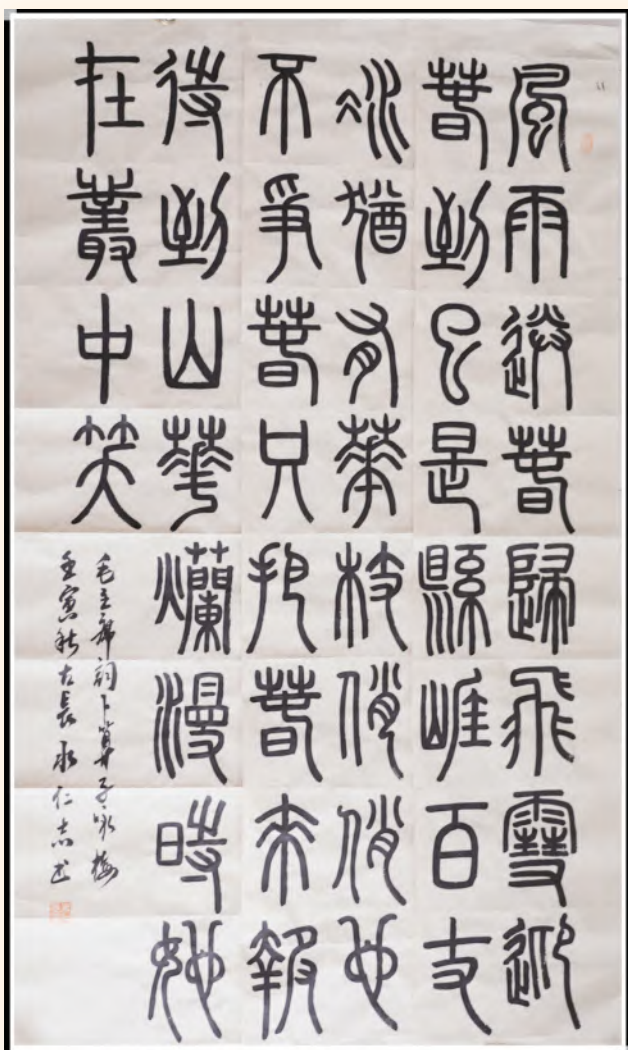 風雨送春歸飛雪迎
春到已是縣崖百丈
冰猶有華枝俏俏也
不爭春只把春來報
待到山華爛漫時她
在叢中笑
毛主席詞卜算子咏梅
壬寅秋古長水仁志书